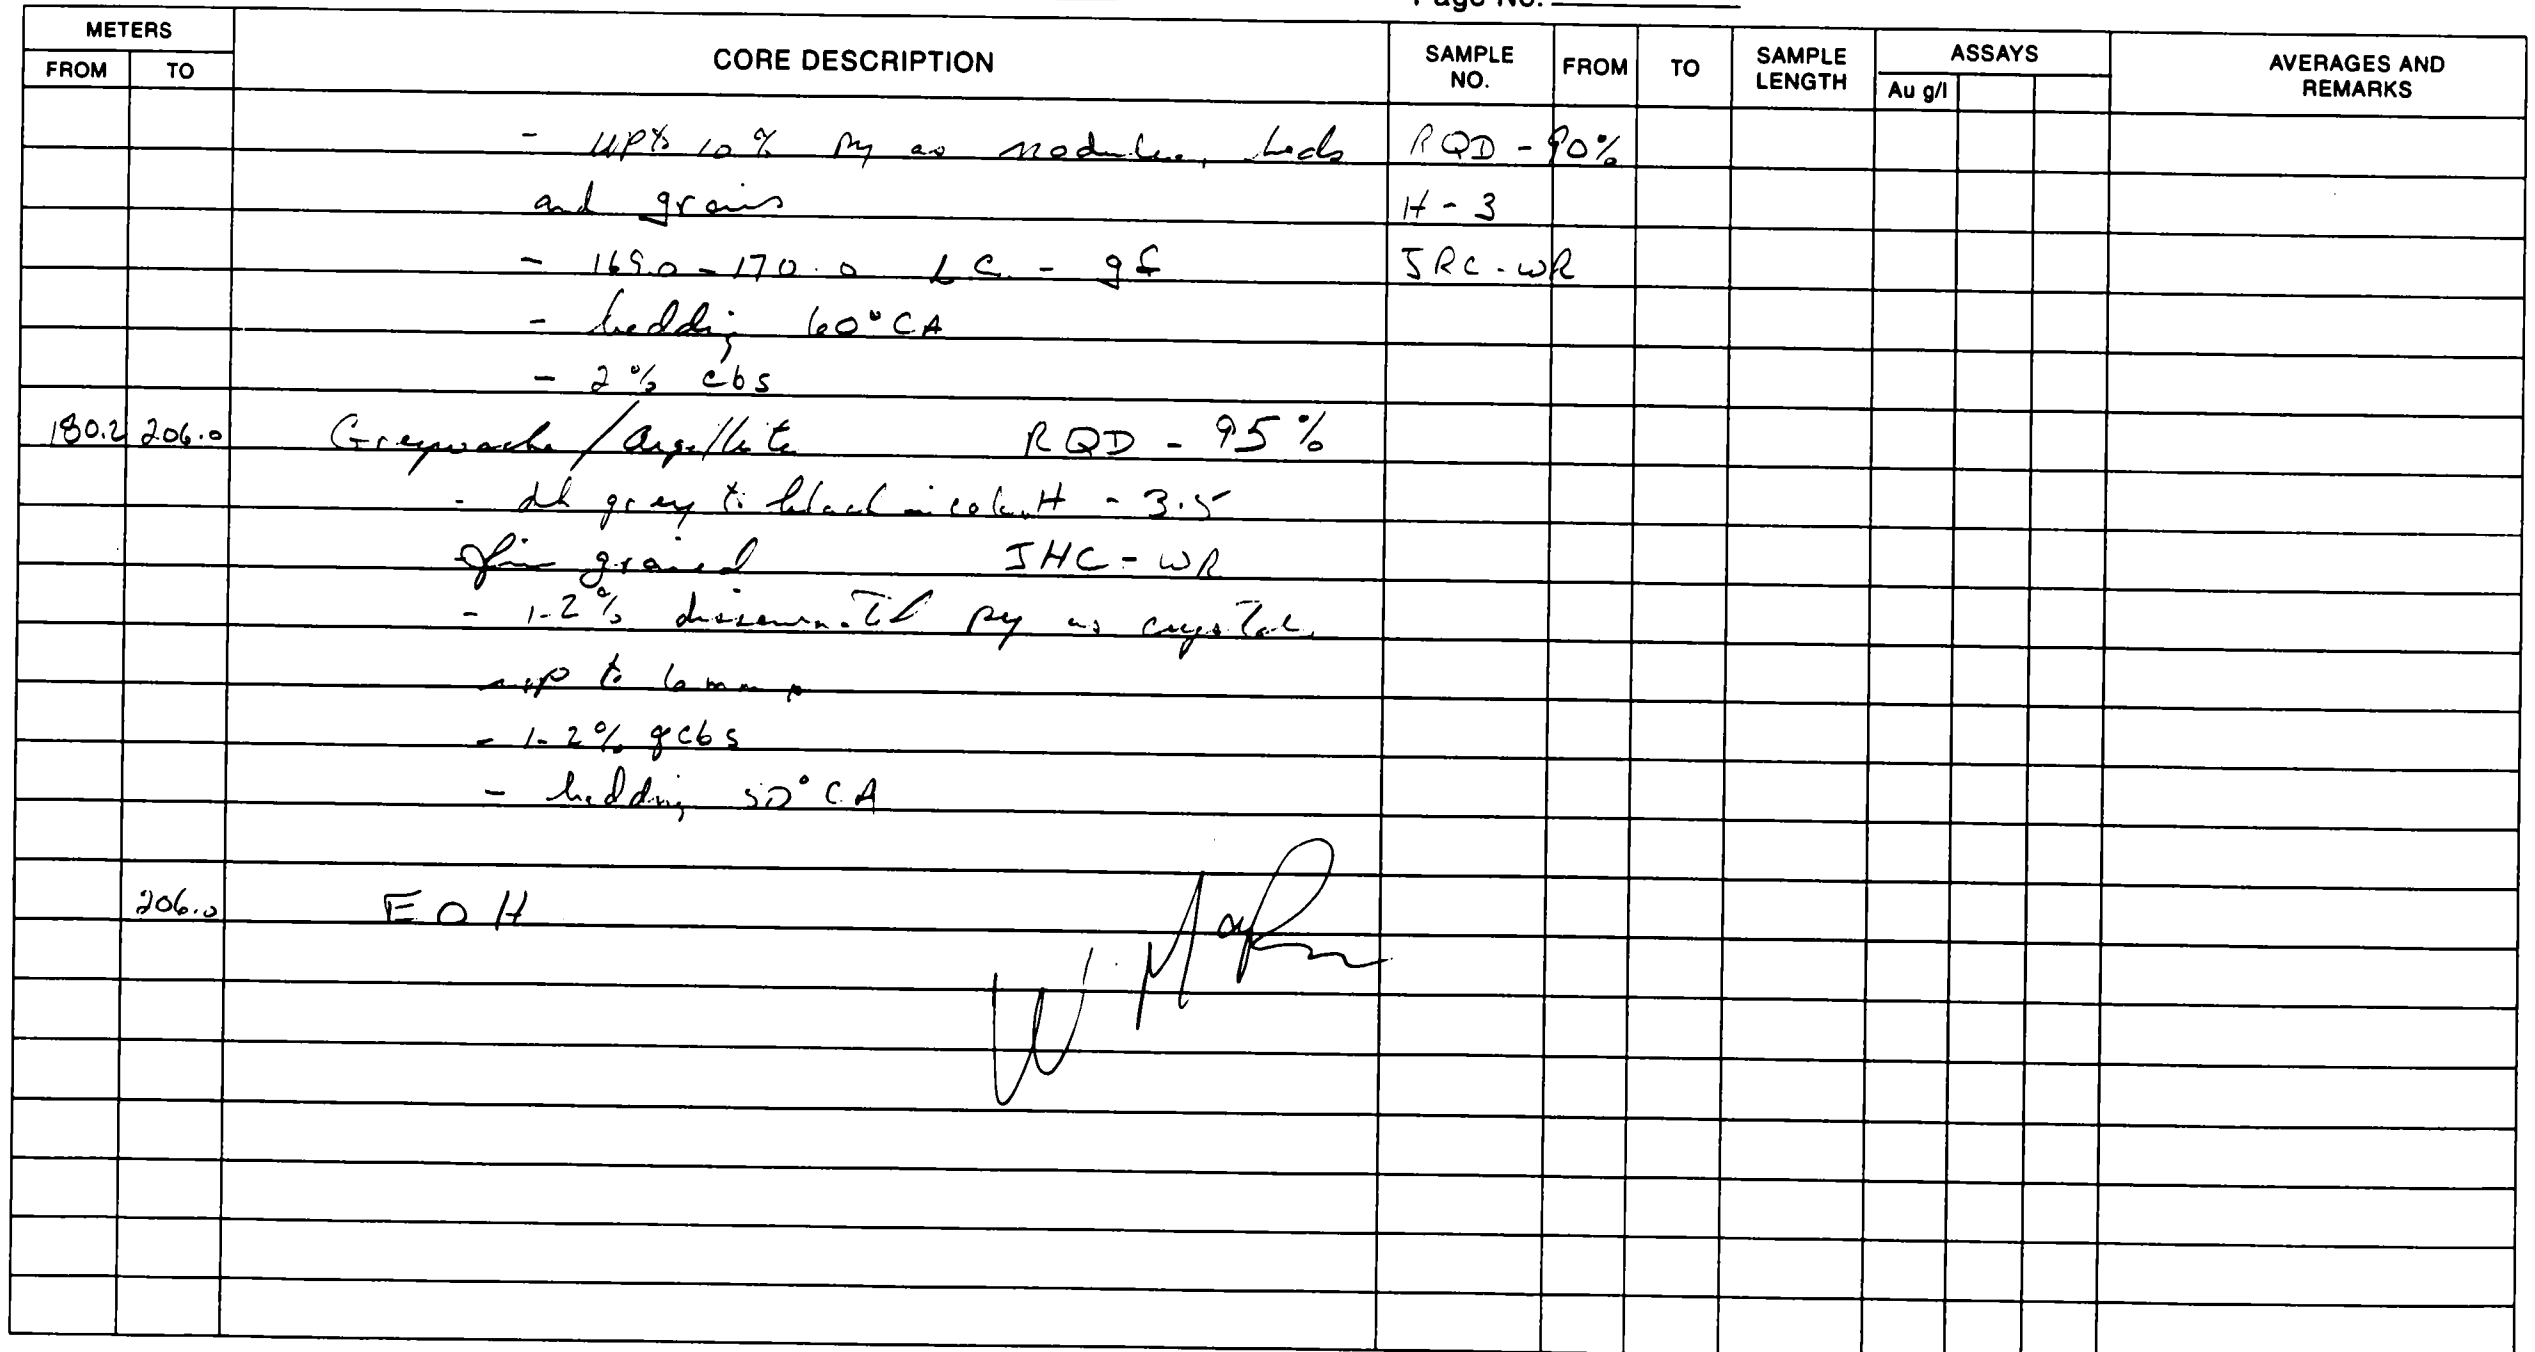 Page No.
METERS
FROM TO CORE DESCRIPTION SAMPLE NO. FROM TO SAMPLE LENGTH ASSAYS Au g/l AVERAGES AND REMARKS
- up to 10% py as nodules, beds RQD - 90%
and grains H - 3
- 169.0 - 170.0 LC - gf JRC - WR
- bedding 60° CA
- 2% cbs
180.2 206.0 Greywacke / Argillite RQD - 95%
- dk grey to black in colour H - 3.5
- fine grained JHC - WR
- 1-2% disseminated py as crystals
up to 6mm
- 1-2% qcbs
- bedding 50° CA
206.0 EOH
W.